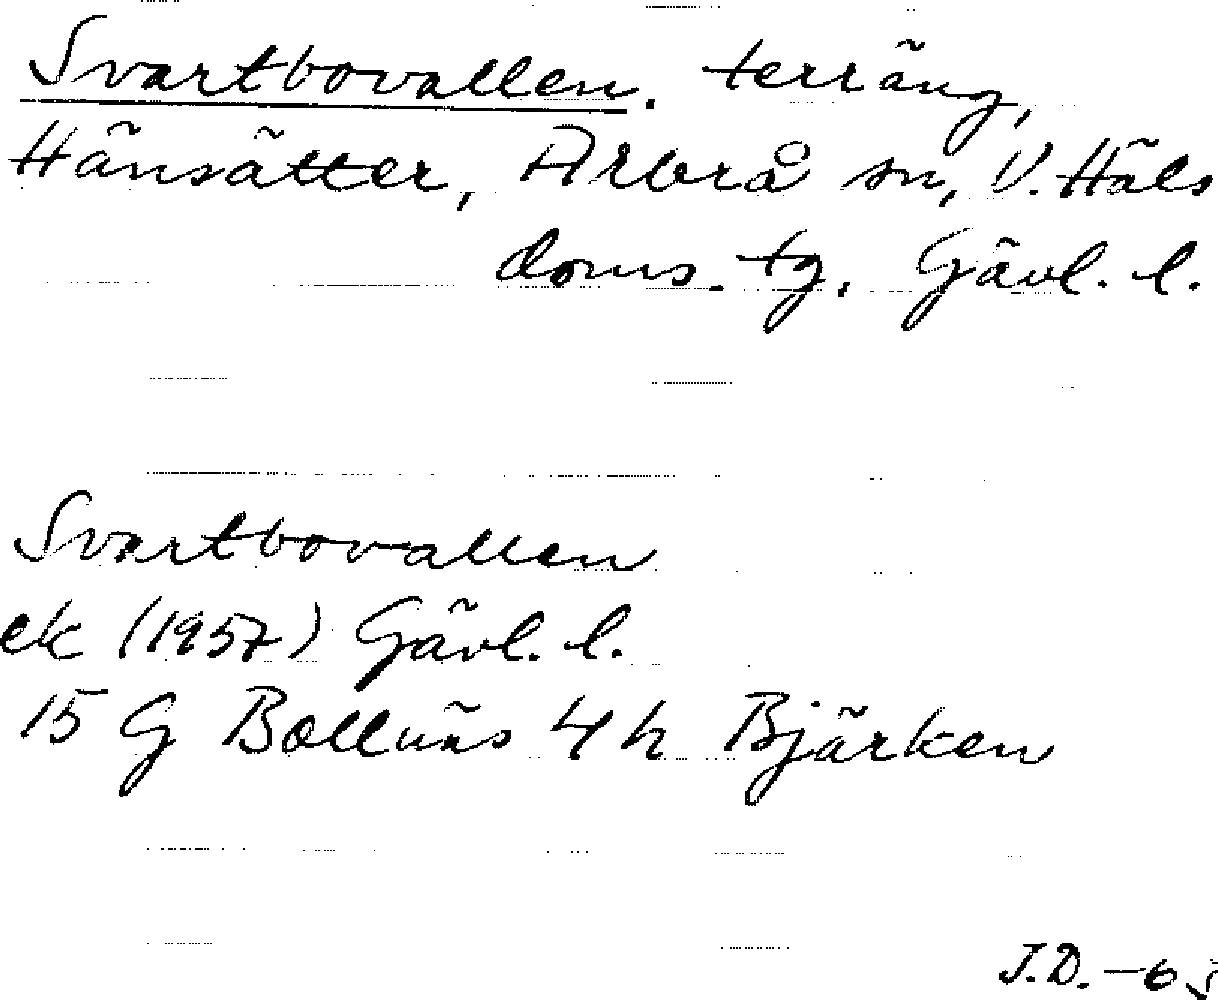 Svartbovallen. terräng,
Hänsätter, Arbrå sn, V. Häls
doms. tg. Gävl. l.
Svartbovallen
ek (1957) Gävl. l.
15 G Bollnäs 4 h Bjärken
J.D. -6